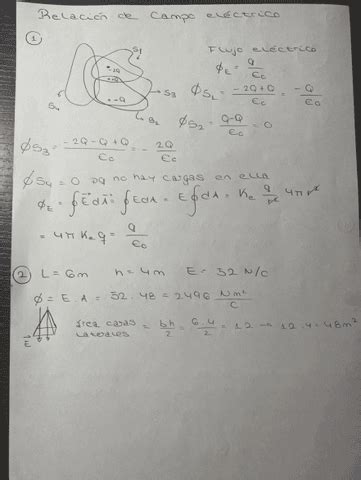 Relación de Campo eléctrico
① Flujo eléctrico
S₁
-2Q
+Q
-Q
S₃
S₄
S₂
ϕE = Q/ε₀
ϕS₁ = -2Q+Q/ε₀ = -Q/ε₀
ϕS₂ = Q-Q/ε₀ = 0
ϕS₃ = -2Q-Q+Q/ε₀ = - 2Q/ε₀
ϕS₄ = 0 pq no hay cargas en ella
ϕE = ∮E⃗ dA⃗ = ∮E dA = E∮dA = Ke q/r² 4πr²
= 4π Ke q = q/ε₀
② L = 6m h = 4m E = 52 N/C
ϕ = E A = 52 . 48 = 2496 Nm²/C
E⃗
área caras laterales = bh/2 = 6.4/2 = 12 → 12.4 = 48m²